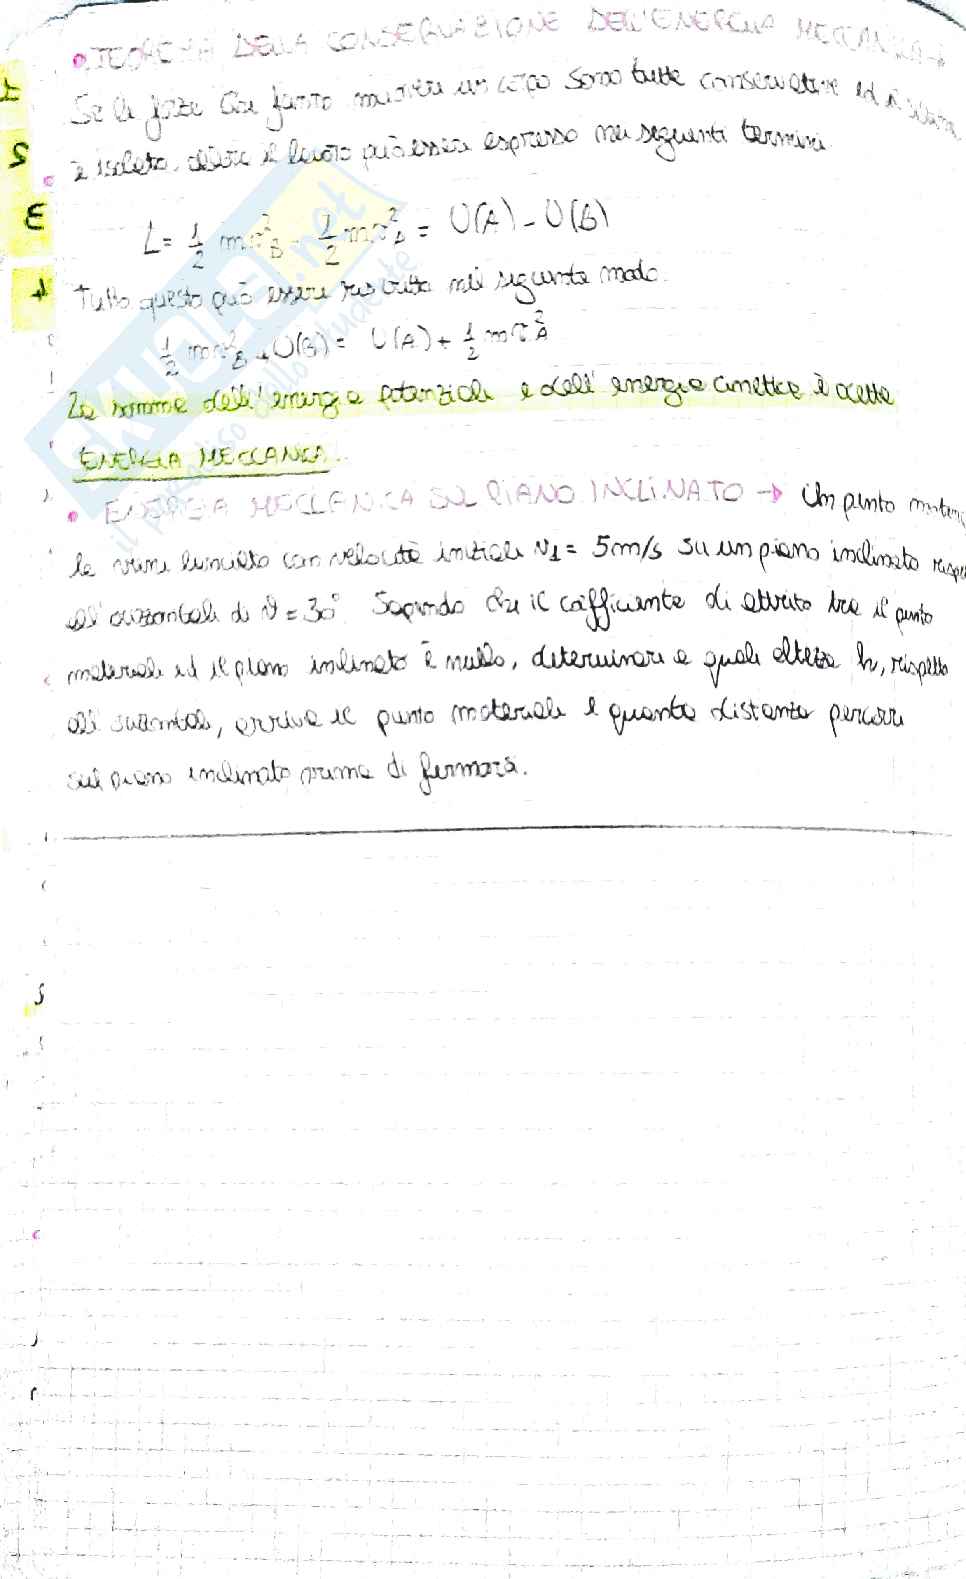 • TEOREMA DELLA CONSERVAZIONE DELL'ENERGIA MECCANICA →
Se le forze che fanno muovere un corpo sono tutte conservative ed il sistema
è isolato, allora il lavoro può essere espresso nei seguenti termini
L = 1/2 mv²B - 1/2 mv²A = U(A) - U(B)
Tutto questo può essere riscritto nel seguente modo.
1/2 mv²B + U(B) = U(A) + 1/2 mv²A
La somma dell'energia potenziale e dell'energia cinetica è detta
ENERGIA MECCANICA.
• ENERGIA MECCANICA SUL PIANO INCLINATO → Un punto materia
le viene lanciato con velocità iniziale v1 = 5m/s su un piano inclinato rispe
all'orizzontale di ϑ = 30° Sapendo che il coefficiente di attrito tra il punto
materiale ed il piano inclinato è nullo, determinare a quale altezza h, rispetto
all'orizzontale, arriva il punto materiale e quanta distanza percorre
sul piano inclinato prima di fermarsi.
1
2
3
4
SKUOLA.net
il paradiso dello studente